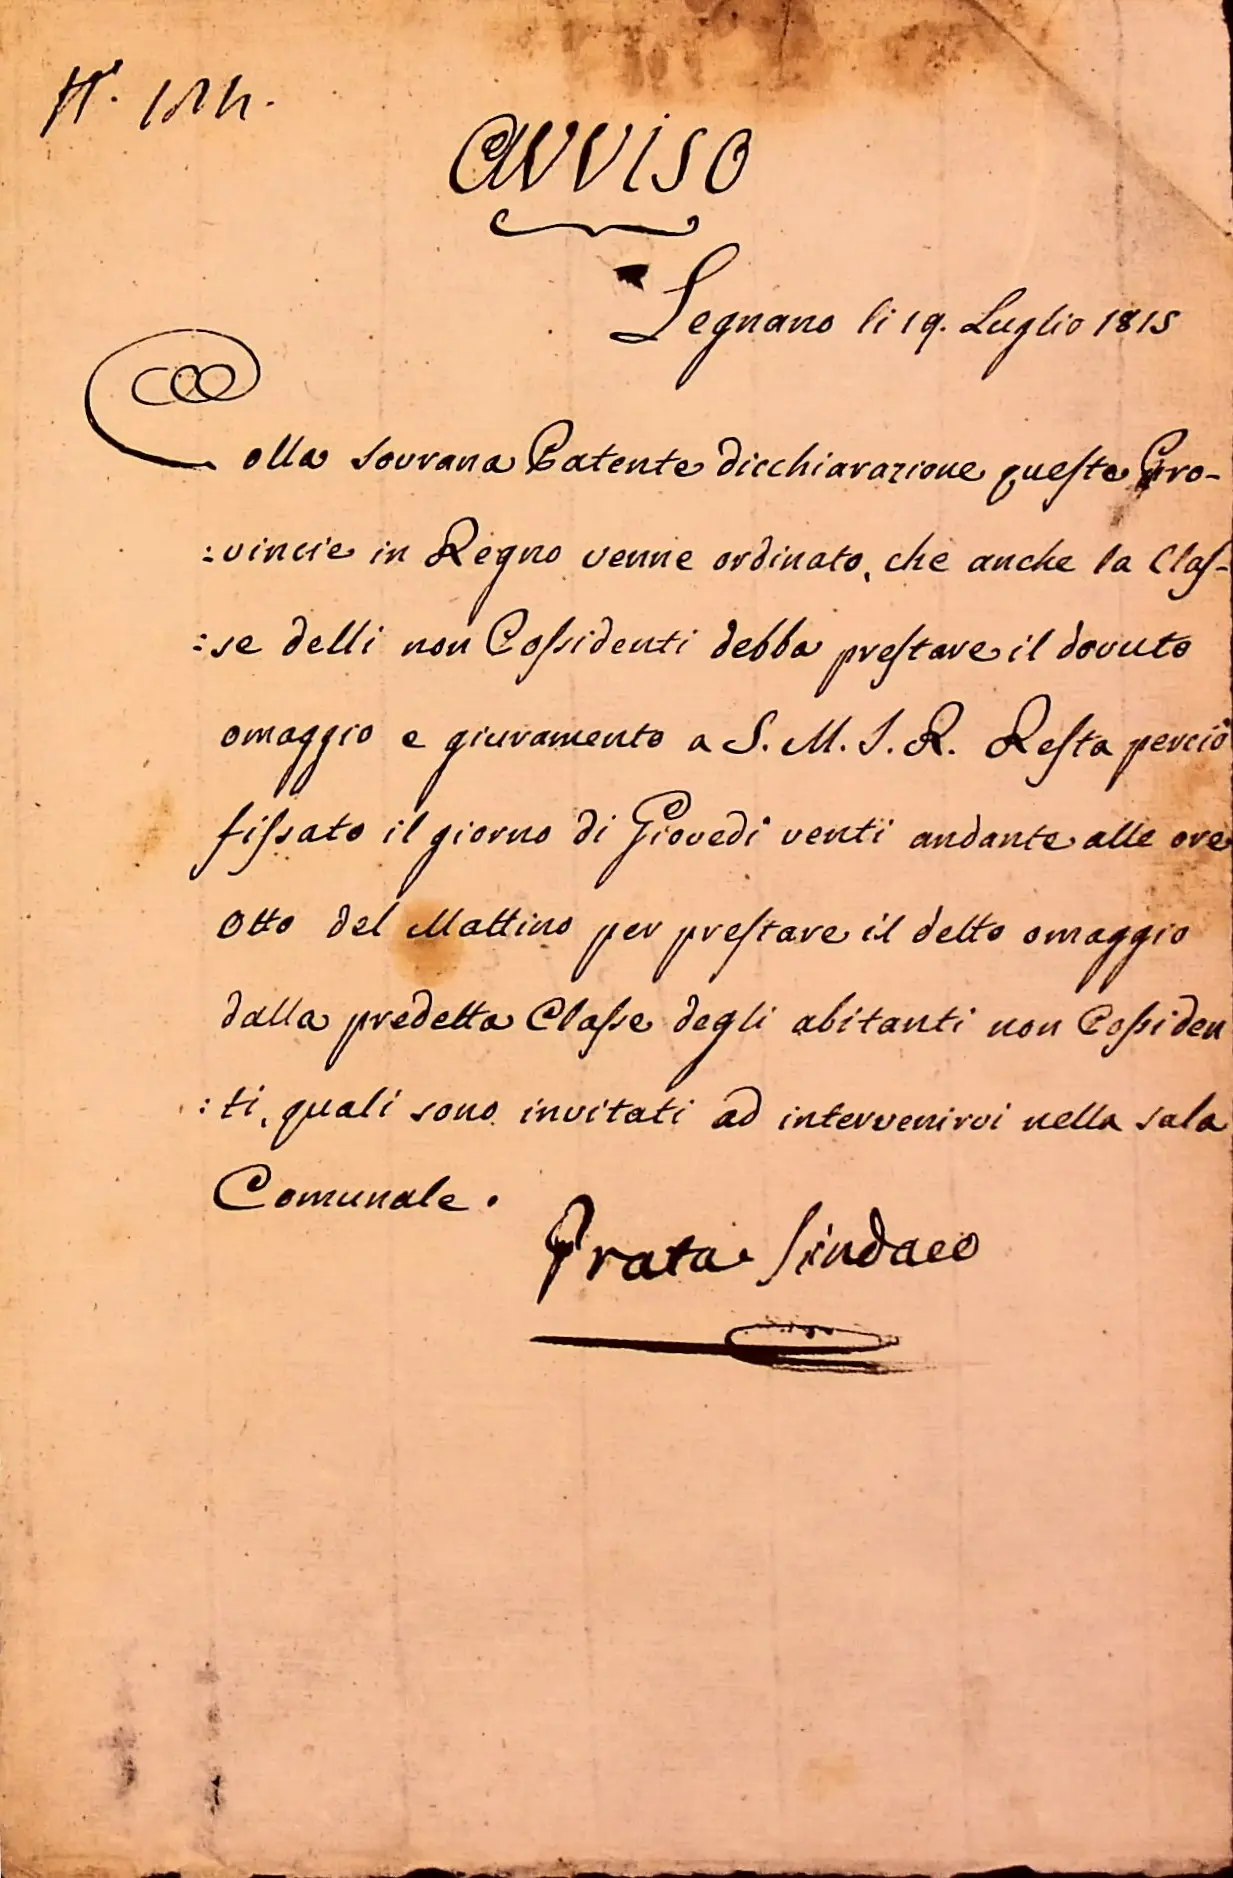 AVVISO
Legnano li 19. Luglio 1815
Colla Sovrana Patente dicchiarazione queste Pro-
:vincie in Regno venne ordinato, che anche la Clas-
:se delli non Possidenti debba prestare il dovuto
omaggio e giuramento a S. M. I. R. Resta perciò
fissato il giorno di Giovedi venti andante alle ore
Otto del Mattino per prestare il detto omaggio
dalla predetta Classe degli abitanti non Possiden
:ti, quali sono invitati ad intervenirvi nella sala
Comunale.
Prata Sindaco